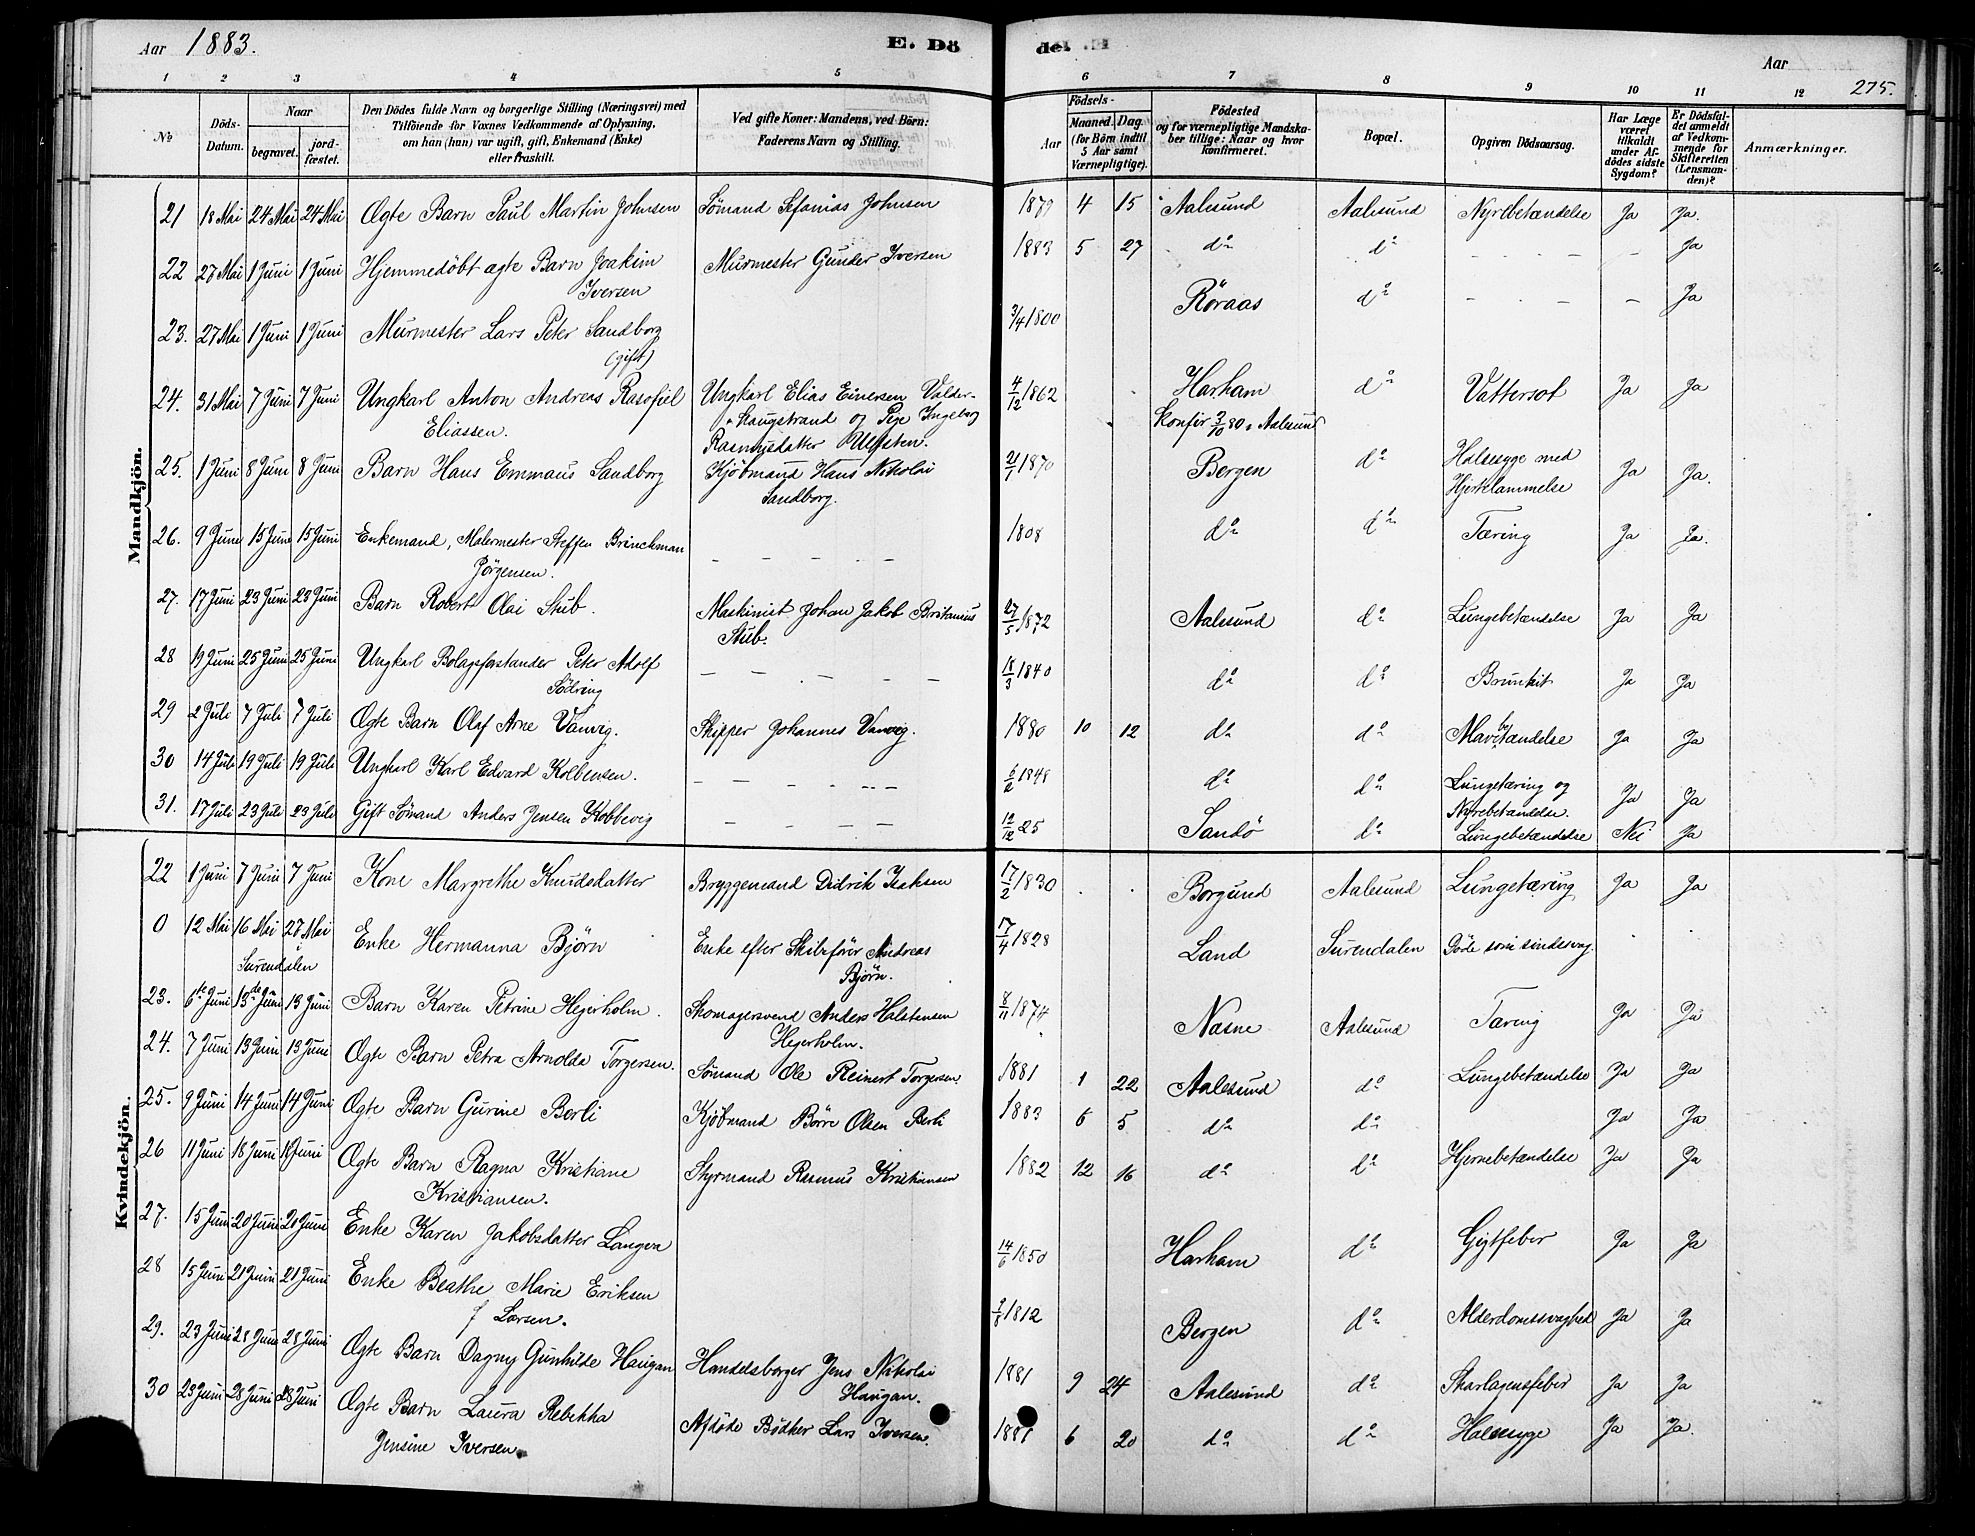 Aar 1883.
E. Dö
de. E
Aar
275.
1 2 3 4 5 6 7 8 9 10 11 12
No
Döds-Datum.
Naar
begravet.
jord-fæstet.
Den Dödes fulde Navn og borgerlige Stilling (Næringsvei) med
Tilföiende for Voxnes Vedkommende af Oplysning,
om han (hun) var ugift, gift, Enkemand (Enke)
eller fraskilt.
Ved gifte Koner: Mandens, ved Börn:
Faderens Navn og Stilling.
Födsels-
Aar
Maaned. Dag.
(for Börn indtil
5 Aar samt
Værnepligtige).
Födested
og for værnepligtige Mandska-
ber tillige: Naar og hvor
konfirmeret.
Bopæl.
Opgiven Dödsaarsag.
Har Læge
været
tilkaldt
under Af-
dödes sidste
Sygdom?
Er Dödsfal-
det anmeldt
af Vedkom-
mende for
Skifteretten
(Lensman-
den)?
Anmærkninger.
Mandkjön.
21 18 Mai 24 Mai 24 Mai Ægte Barn Paul Martin Johnsen Sömand Sefanias Johnsen 1879 4 15 Aalesund Aalesund Nyrebetændelse Ja Ja.
22 27 Mai 1 Juni 1 Juni Hjemmedöbt ægte Barn Joakim Murmester Gunder Iversen 1883 5 27 do do - - - - Ja
Iversen
23. 27 Mai 1 Juni 1 Juni Murmester Lars Peter Sandborg 3/4 1800 Röraas do - - - - Ja
(gift)
24. 31 Mai 7 Juni 7 Juni Ungkarl Anton Andreas Rasofiel Ungkarl Elias Einersen Valder- 4/12 1862 Harham do Vattersot Ja Ja
Eliassen. Haugstrand og Pige Ingeborg Konfir 3/10 80 i Aalesund
Rasmusdatter Ulfsten.
25. 1 Juni 8 Juni 8 Juni Barn Hans Emmaus Sandborg Kjöbmand Hans Nikolai 21/1 1870 Bergen do Halssyge med Ja Ja.
Sandborg. Hjertelammelse
26. 9 Juni 15 Juni 15 Juni Enkemand, Malermester Steffen Brinchman - - - - 1808 do do Tæring Ja Ja.
Jörgensen.
27. 17 Juni 23 Juni 23 Juni Barn Robert Olai Stub. Maskinist Johan Jakob Bretanius 27/5 1872 Aalesund do Lungebetændelse Ja Ja
Stub.
28 19 Juni 25 Juni 25 Juni Ungkarl Bolagsforstander Peter Adolf - - - - - 18/3 1840 do do Brunkit Ja Ja
Södring
29 2 Juli 7 Juli 7 Juli Ægte Barn Olaf Arne Vanvig. Skipper Johannes Vanvig. 1880 10 12 do do Mavebetændelse Ja Ja
30 14 Juli 19 Juli 19 Juli Ungkarl Karl Edvard Kolbensen. - - - - - 6/2 1848 do do Lungetæring og Ja Ja
Nyrebetændelse.
31. 17 Juli 23 Juli 23 Juli Gift Sömand Anders Jensen Kobbevig - - - - 12/12 25 Sandö do Lungebetændelse Nei Ja
Kvindekjön.
22 1 Juni 7 Juni 7 Juni Kone Margrethe Knudsdatter Bryggemand Didrik Isaksen 17/2 1830 Borgund Aalesund Lungetæring Ja Ja
0 12 Mai 16 Mai 28 Mai Enke Hermanna Björn Enke efter Skibsförer Andreas 17/4 1828 Land Surendalen Döde som sindssvag.
i Surendalen Björn.
23. 6te Juni 13de Juni 13 Juni Barn Karen Petrine Hejerholm. Skomagersvend Anders Halstensen 8/11 1874 Næsne Aalesund Tæring Ja Ja
Hejerholm.
24. 7 Juni 13 Juni 13 Juni Ægte Barn Petra Arnolda Torgersen. Sömand Ole Reinert Torgersen. 1881 1 22 Aalesund do Lungebetændelse Ja Ja
25. 9 Juni 14 Juni 14 Juni Ægte Barn Gurine Berli Kjöbmand Börre Olsen Berli 1883 6 5 do do Ja Ja
26 11 Juni 18 Juni 18 Juni Ægte Barn Ragna Kristiane Styrmand Rasmus Kristiansen 1882 12 16 do do Hjernebetændelse Ja Ja
Kristiansen.
27. 15 Juni 20 Juni 20 Juni Enke Karen Jakobsdatter Langva 14/6 1850 Harham do Gigtfeber Ja Ja
28 15 Juni 21 Juni 21 Juni Enke Beathe Marie Eriksen 9/8 1812 Bergen do Alderdomssvaghed Ja Ja
f Larsen.
29. 23 Juni 28 Juni 28 Juni Ægte Barn Dagny Gunhilde Haugan Handelsborger Jens Nikolai 1881 9 24 Aalesund do Skarlagensfeber Ja Ja
Haugan.
30 23 Juni 28 Juni 28 Juni Ægte Barn Laura Rebekka Afdöde Bödker Lars Iversen. 1881 6 20 do do Halssyge Ja Ja.
Jensine Iversen.